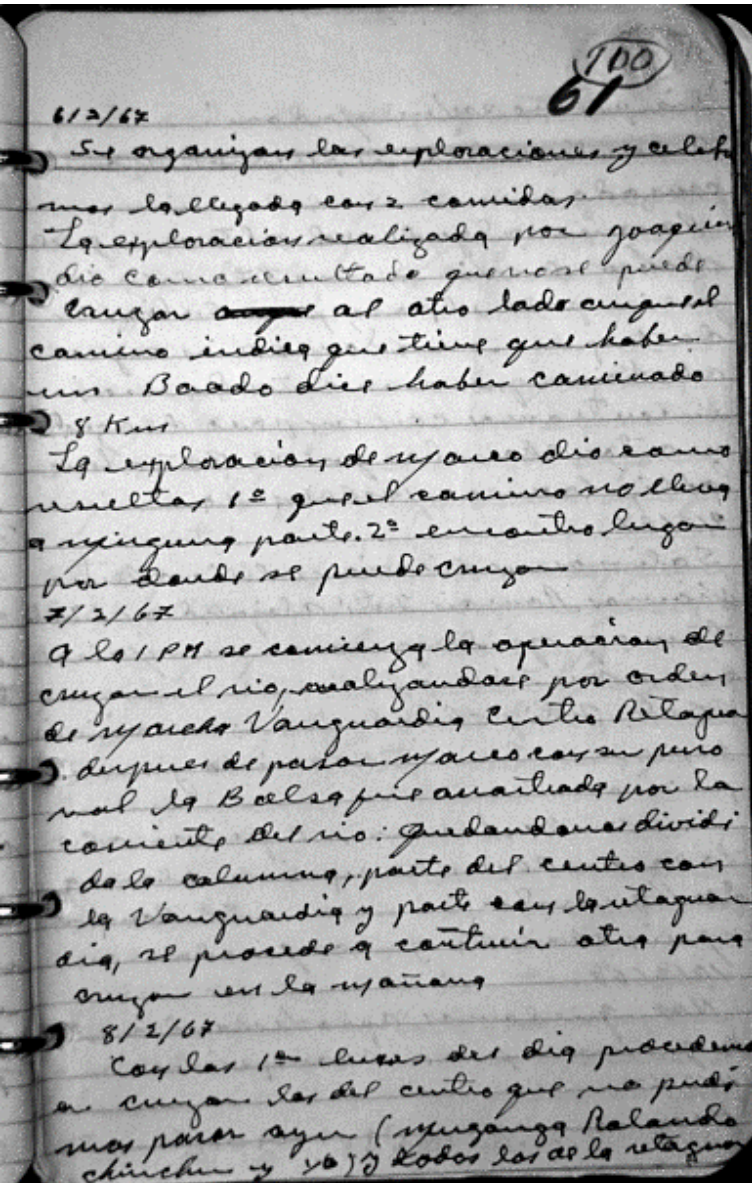 100
61
6/2/67
Se organizan las exploraciones y celebra
mos la llegada con 2 comidas.
La exploracion realizada por Joaquin
dio como resultado que no se puede
cruzar al otro lado aunque el
camino indica que tiene que haber
uno. Baado dice haber caminado
8 Kms
La exploracion de Marco dio como
resultas 1º que el camino no lleva
a ninguna parte. 2º encontro lugar
por donde se puede cruzar
7/2/67
A la 1 PM se comienza la operacion de
cruzar el rio, realizandose por orden
de Marcha Vanguardia Centro Retagua
despues de pasar Marco con su perso
nal la Balsa fue arrastrada por la
corriente del rio: quedandonos dividi
da la columna, parte del centro con
la Vanguardia y parte con la retaguar
dia, se procede a contruir otra para
cruzar en la mañana
8/2/67
Con las 1as luces del dia procedemo
a cruzar los del centro que no pudi
mos pasar ayer (Muganga Rolando
chinchu y yo) y todos los de la retaguar